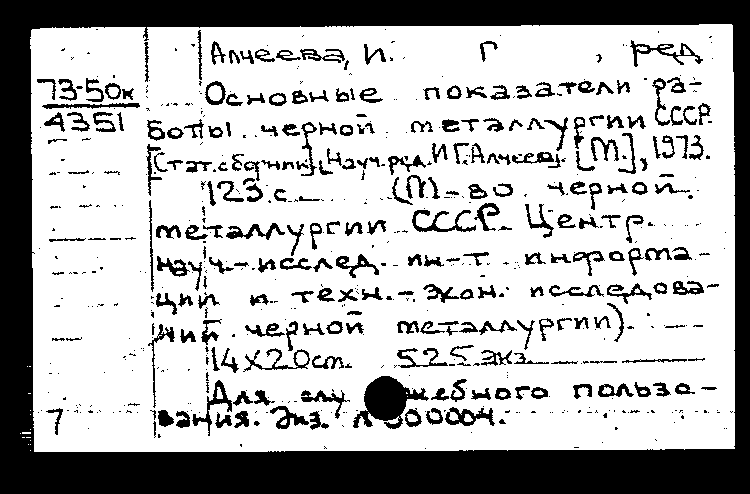 Алчеева, И. Г , ред
73-50к
4351
Основные показатели ра-
боты черной металлургии СССР.
[Стат. сборник]. Науч. ред. И.Г. Алчеева. [М.], 1973.
123 с. (М-во черной
металлургии СССР. Центр.
науч.-исслед. ин-т информа-
ции и техн.-экон. исследова-
ний черной металлургии).
14х20см. 525 экз.
Для служебного пользо-
вания. Экз. № 000004.
7